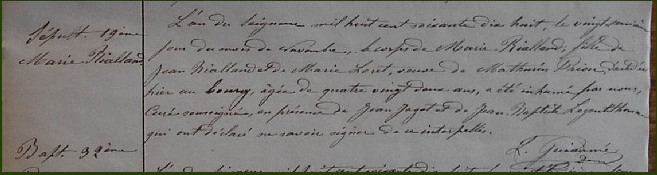 Sépult 19ème
Marie Rialland
L'an du Seigneur mil huit cent soixante dix huit, le vingt
jour du mois de novembre, le corps de Marie Rialland, fille de
Jean Rialland et de Marie Loret, veuve de Mathurin décédée
hier au bourg, âgée de quatre vingt deux ans, a été inhumé par nous,
Curé soussigné, en présence de Jean Jagot et de Jean Baptiste
qui ont déclaré ne savoir signer de ce interpellés.
Bapt. 39ème